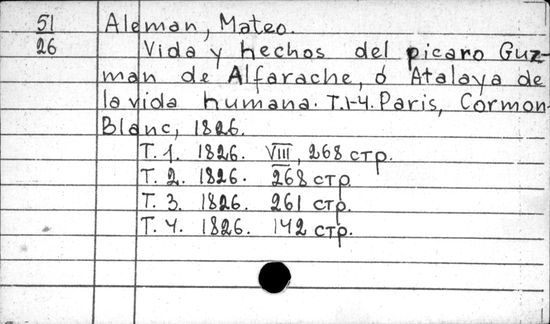 51 Aleman, Mateo.
26 Vida y hechos del picaro Guz-
man de Alfarache, ó Atalaya de
la vida humana. T.1-4. Paris, Cormon-
Blanc, 1826.
T. 1. 1826. VIII, 268 стр.
T. 2. 1826. 268 стр.
T. 3. 1826. 261 стр.
T. 4. 1826. 142 стр.